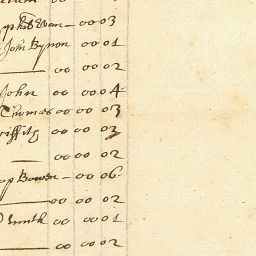 Evan — 00 03
John Bynon 00 01
— 00 02
John 00 00 4
Thomas 00 00 03
Griffitg 00 00 03
— 00 00 02
Bowen — 00 06
— 00 00 02
Smith 00 01
— 00 02